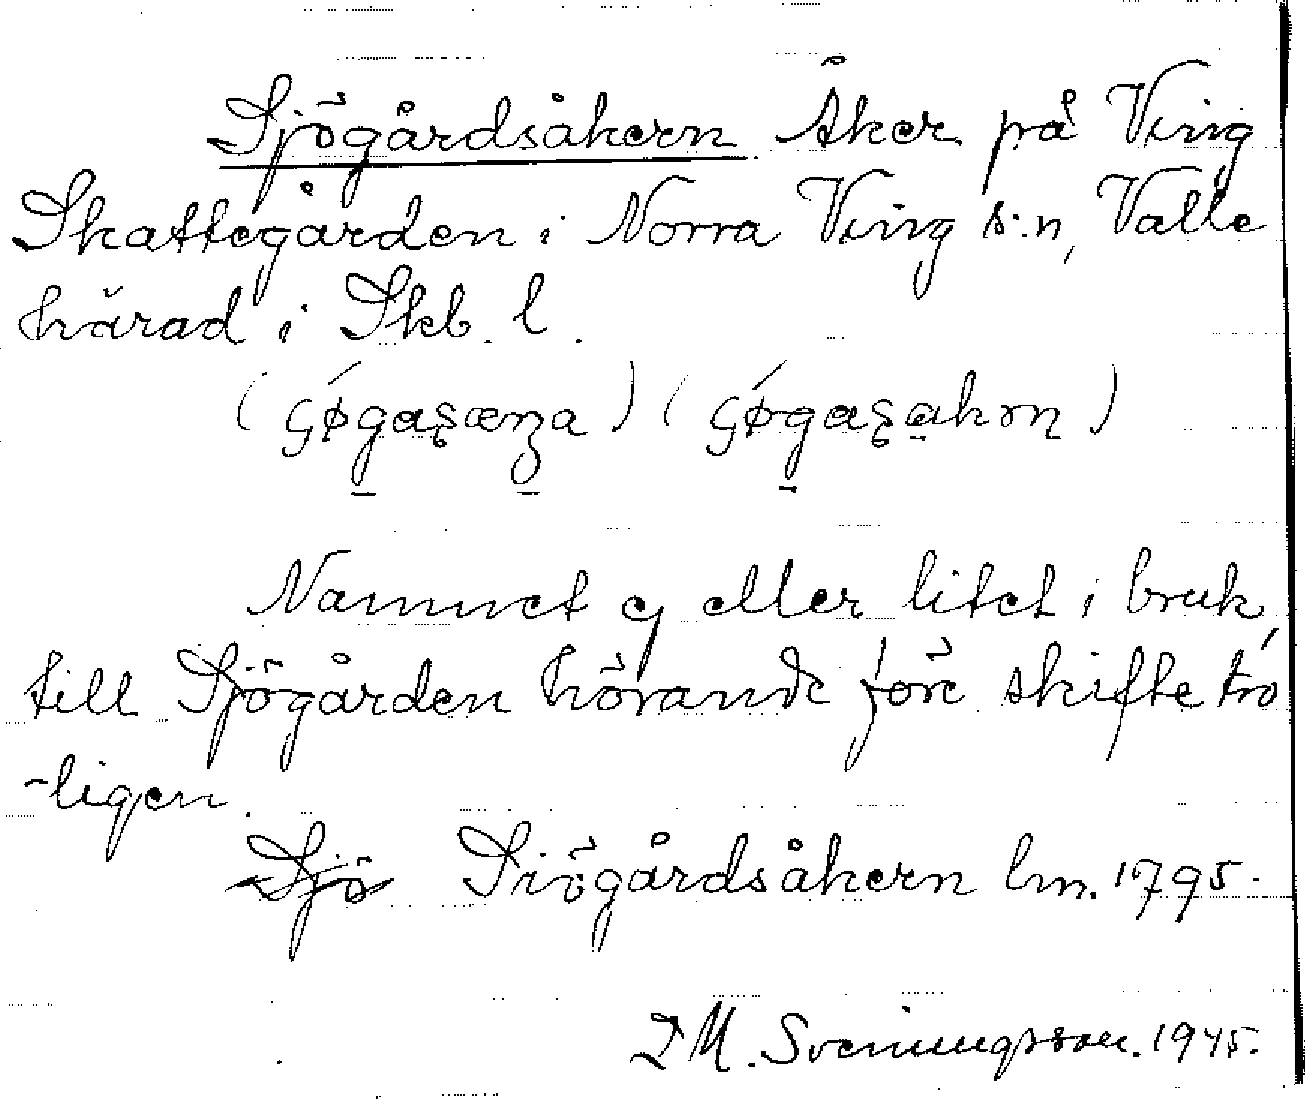 Sjögårdsåkern Åker på Ving
Skattegården i Norra Ving s:n, Valle
härad i Skb. l.
Namnet ej eller litet i bruk,
till Sjögården hörande före skifte tro
-ligen.
Sjö Siögårdsåkern lm. 1795.
M. Svenningsson. 1945.